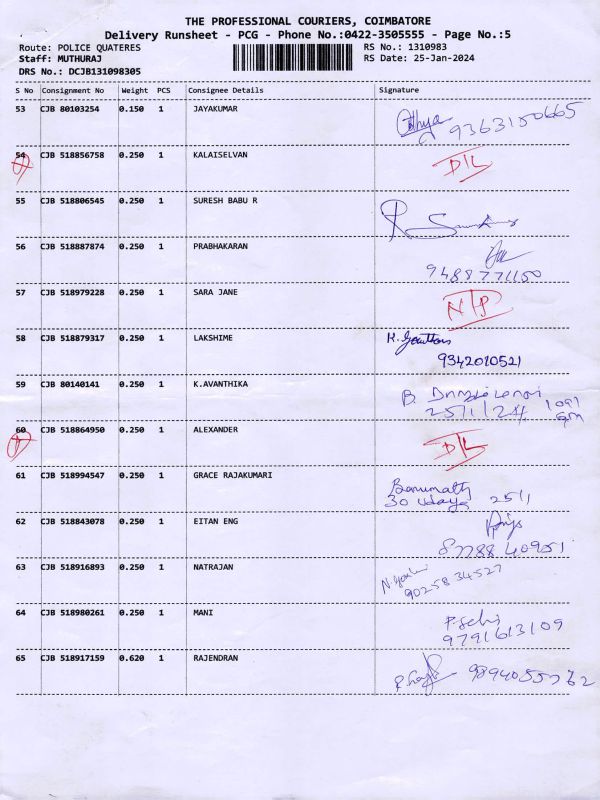 THE PROFESSIONAL COURIERS, COIMBATORE
Delivery Runsheet - PCG - Phone No.:0422-3505555 - Page No.:5
Route: POLICE QUATERES RS No.: 1310983
Staff: MUTHURAJ RS Date: 25-Jan-2024
DRS No.: DCJB131098305
S No Consignment No Weight PCS Consignee Details Signature
53 CJB 80103254 0.150 1 JAYAKUMAR 9363150665
54 CJB 518856758 0.250 1 KALAISELVAN D/L
55 CJB 518806545 0.250 1 SURESH BABU R
56 CJB 518887874 0.250 1 PRABHAKARAN
9488771150
57 CJB 518979228 0.250 1 SARA JANE N/P
58 CJB 518879317 0.250 1 LAKSHIME K. Gowtham
9342010521
59 CJB 80140141 0.250 1 K.AVANTHIKA B.
25/1/24
60 CJB 518864950 0.250 1 ALEXANDER D/L
61 CJB 518994547 0.250 1 GRACE RAJAKUMARI Banumathy
25/1
62 CJB 518843078 0.250 1 EITAN ENG
63 CJB 518916893 0.250 1 NATRAJAN
9025834527
64 CJB 518980261 0.250 1 MANI P. Selvi
9791613109
65 CJB 518917159 0.620 1 RAJENDRAN